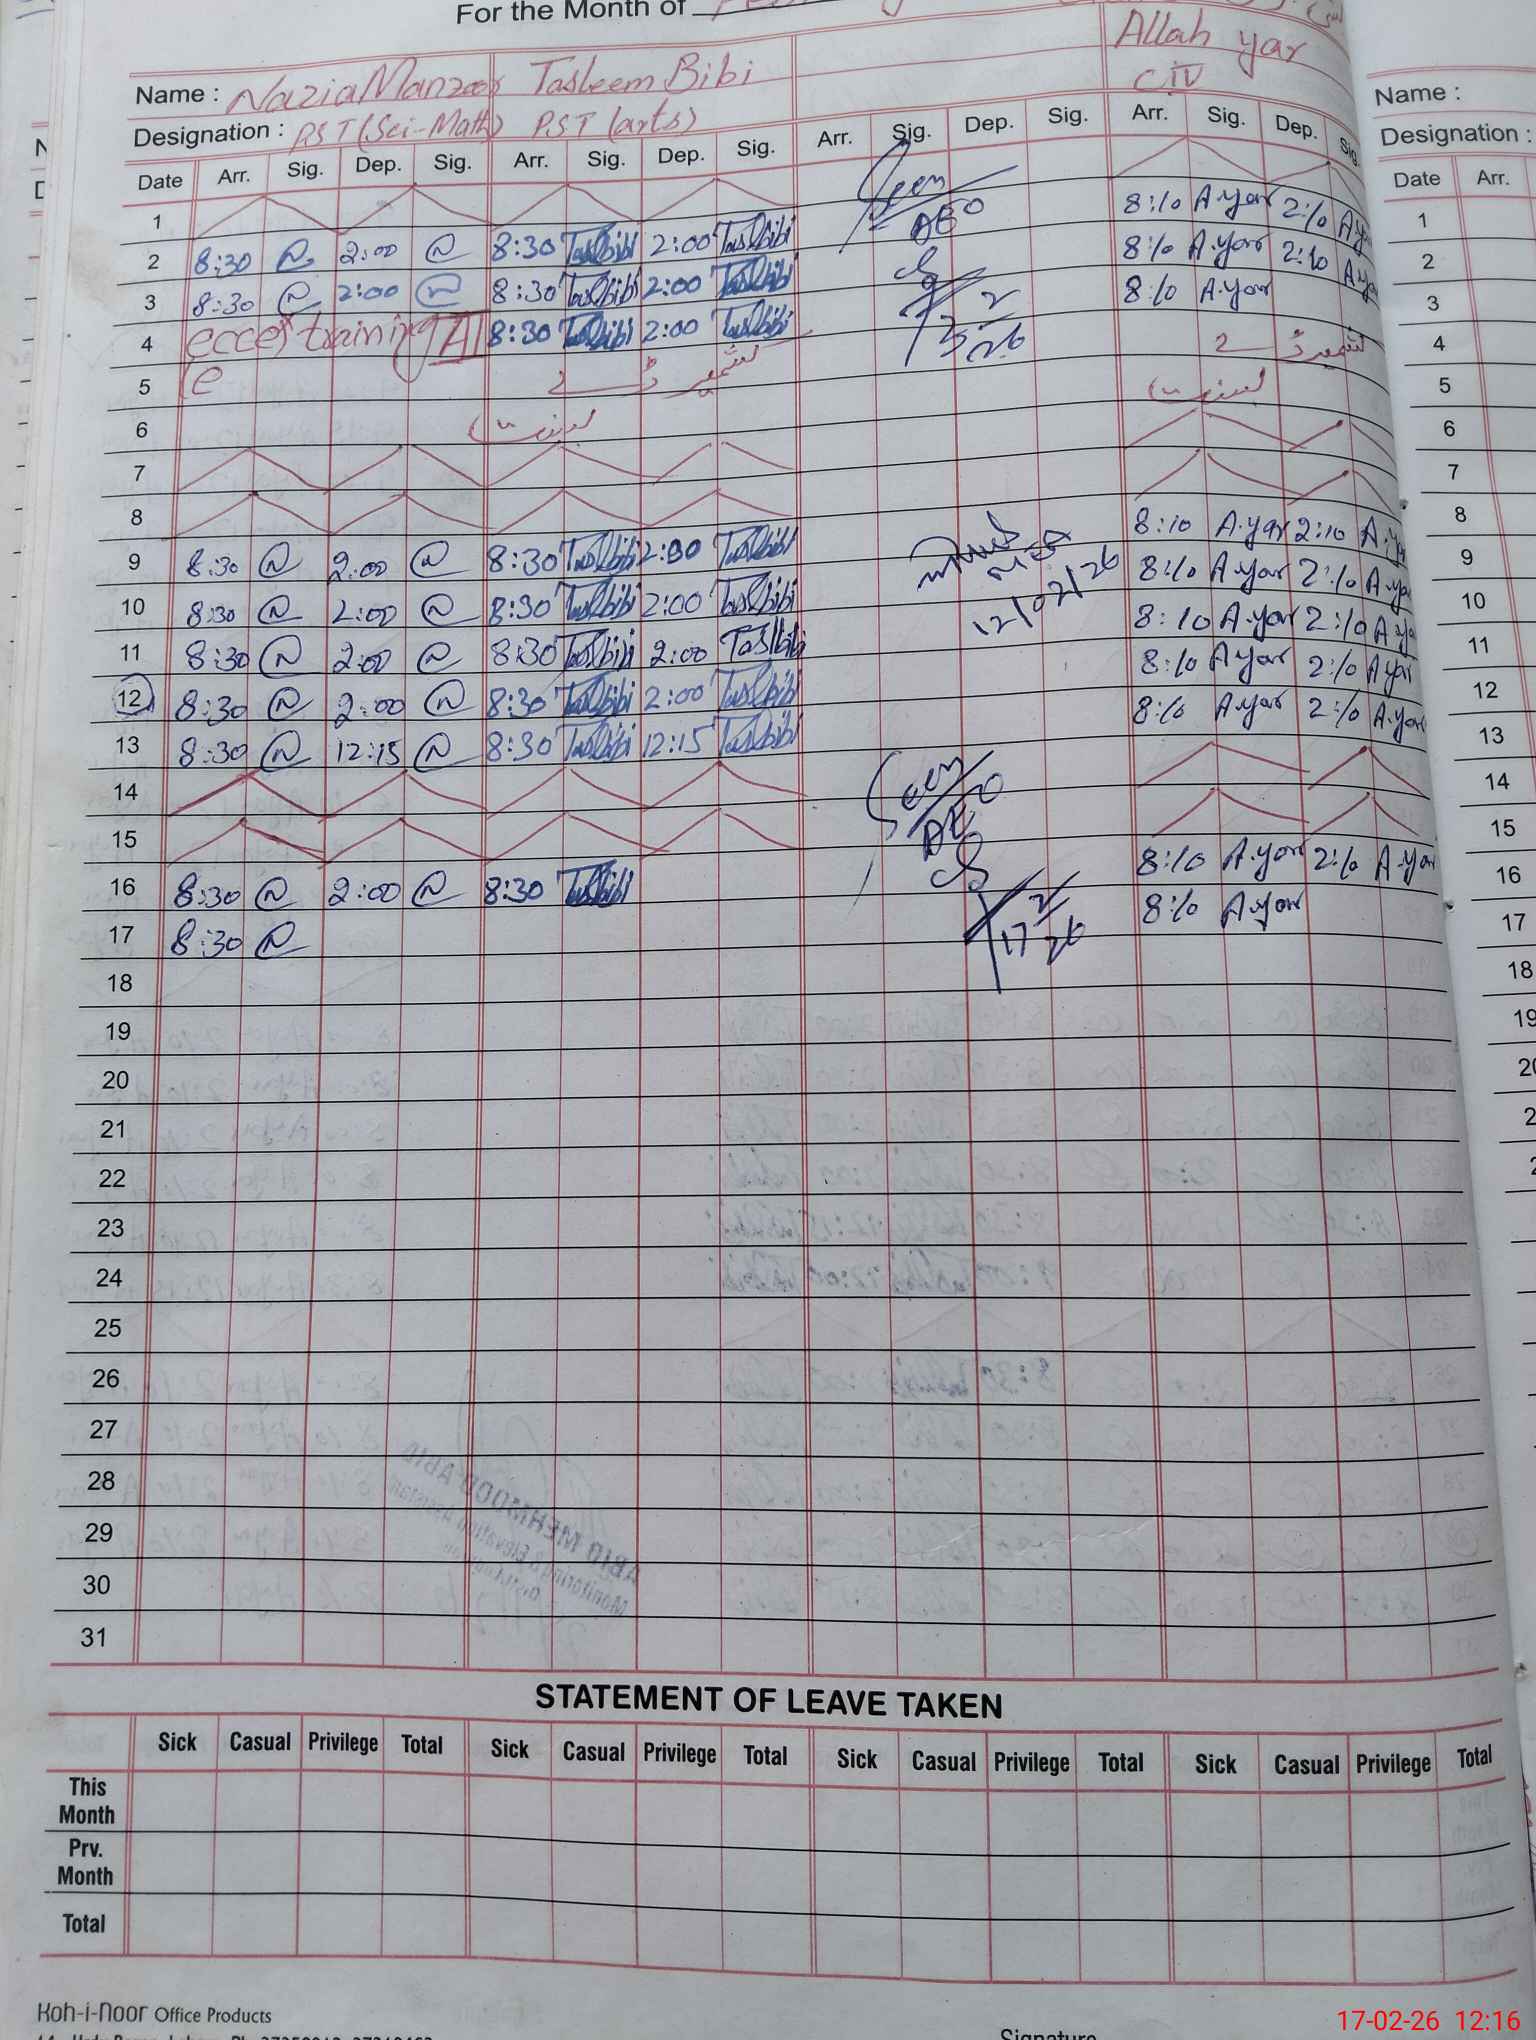 For the Month of
Allah yar
Name : Nazia Manzoor Tasleem Bibi
CIV
Name :
Designation : PST (Sci-Math) PST (arts)
Designation :
Date Arr. Sig. Dep. Sig. Arr. Sig. Dep. Sig. Arr. Sig. Dep. Sig. Arr. Sig. Dep. Sig.
Date Arr.
1
Seen
AEO
3/2/26
8:10 A.yar 2:10
2 8:30 2:00 8:30 Taslbibi 2:00 Taslbibi 8:10 A.yar 2:10
3 8:30 2:00 8:30 Taslbibi 2:00 Taslbibi 8:10 A.yar
4 training 8:30 Taslbibi 2:00 Taslbibi
5 کشمیر ڈے
کشمیر ڈے
6
7
8
9 8:30 2:00 8:30 Taslbibi 2:00 Taslbibi 8:10 A.yar 2:10
10 8:30 2:00 8:30 Taslbibi 2:00 Taslbibi 12/02/26 8:10 A.yar 2:10 A.yar
11 8:30 2:00 8:30 Taslbibi 2:00 Taslbibi 8:10 A.yar 2:10
12 8:30 2:00 8:30 Taslbibi 2:00 Taslbibi 8:10 A.yar 2:10 A.yar
13 8:30 12:15 8:30 Taslbibi 12:15 Taslbibi 8:10 A.yar 2:10 A.yar
14
Seen
AEO
15
16 8:30 2:00 8:30 Taslbibi 8:10 A.yar 2:10 A.yar
17 8:30 17/2/26 8:10 A.yar
18
19
20
21
22
23
24
25
26
27
28
29
30
31
1
2
3
4
5
6
7
8
9
10
11
12
13
14
15
16
17
18
19
STATEMENT OF LEAVE TAKEN
Sick Casual Privilege Total Sick Casual Privilege Total Sick Casual Privilege Total Sick Casual Privilege Total
This
Month
Prv.
Month
Total
Koh-i-noor Office Products
Signature
17-02-26 12:16